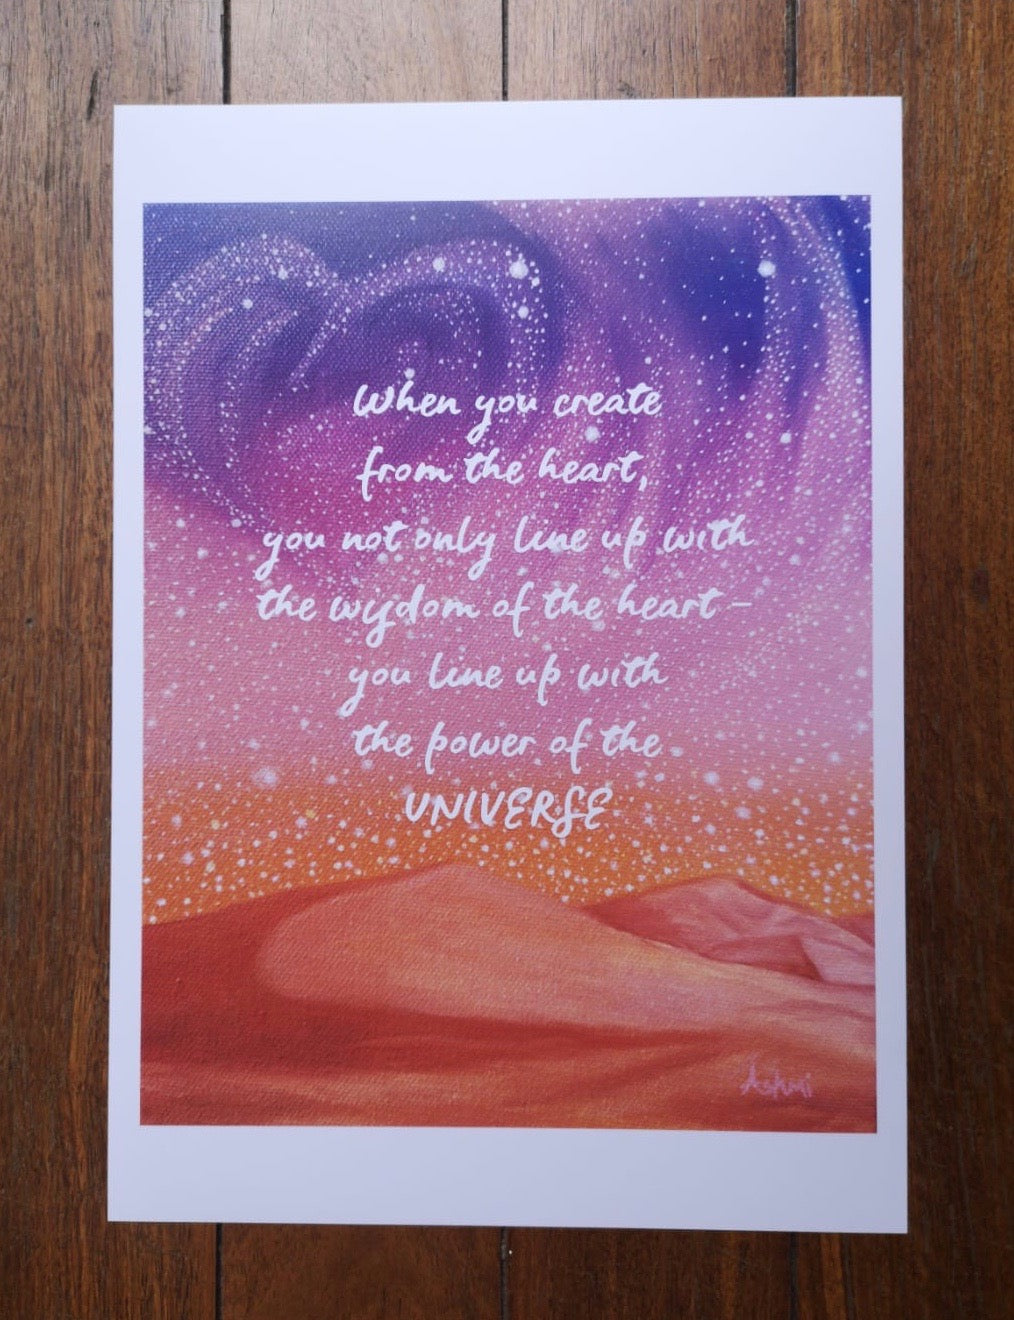 When you create
from the heart,
you not only line up with
the wysdom of the heart –
you line up with
the power of the
UNIVERSE